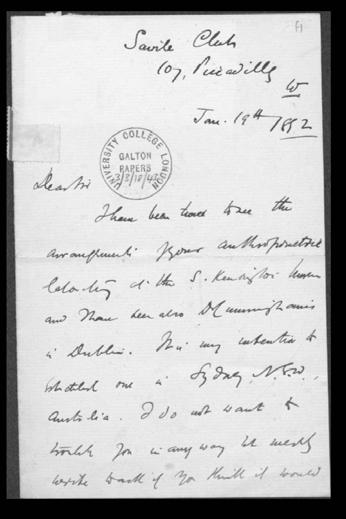 Savile Club
107, Piccadilly
W
Jan. 19th 1892
UNIVERSITY COLLEGE LONDON
GALTON
PAPERS
Dear Sir
I have been to see the
arrangements of your anthropometric
laboratory at the S. Kensington Museum
and I have seen also Dr Cunningham's
in Dublin. It is my intention to
establish one in Sydney N.S.W.,
Australia. I do not want to
trouble you in any way but merely
write to ask if you think it would